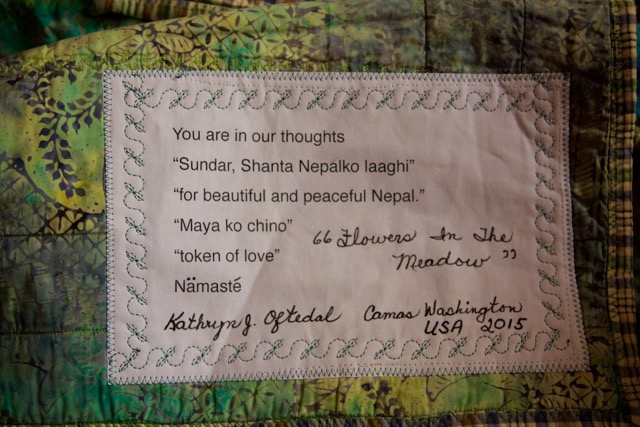 You are in our thoughts
“Sundar, Shanta Nepalko laaghi”
“for beautiful and peaceful Nepal.”
“Maya ko chino”
“token of love”
“Flowers In The
Meadow”
Nämasté
Kathryn J. Oftedal
Camas Washington
USA 2015